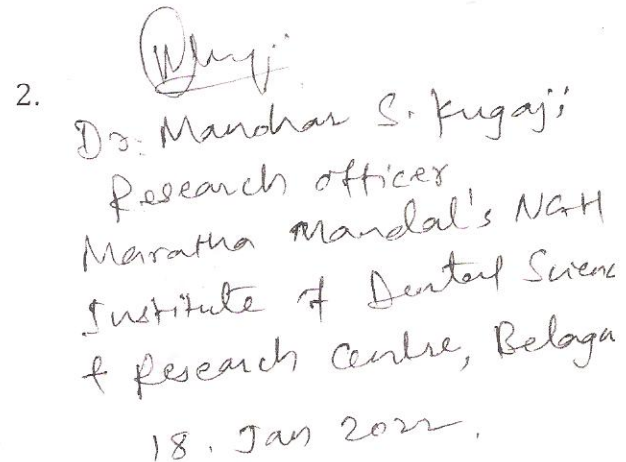 2.
Dr. Manohar S. Kugaji
Research officer
Maratha Mandal's NGH
Institute of Dental Scienc
& Research Centre, Belaga
18. Jan 2022.